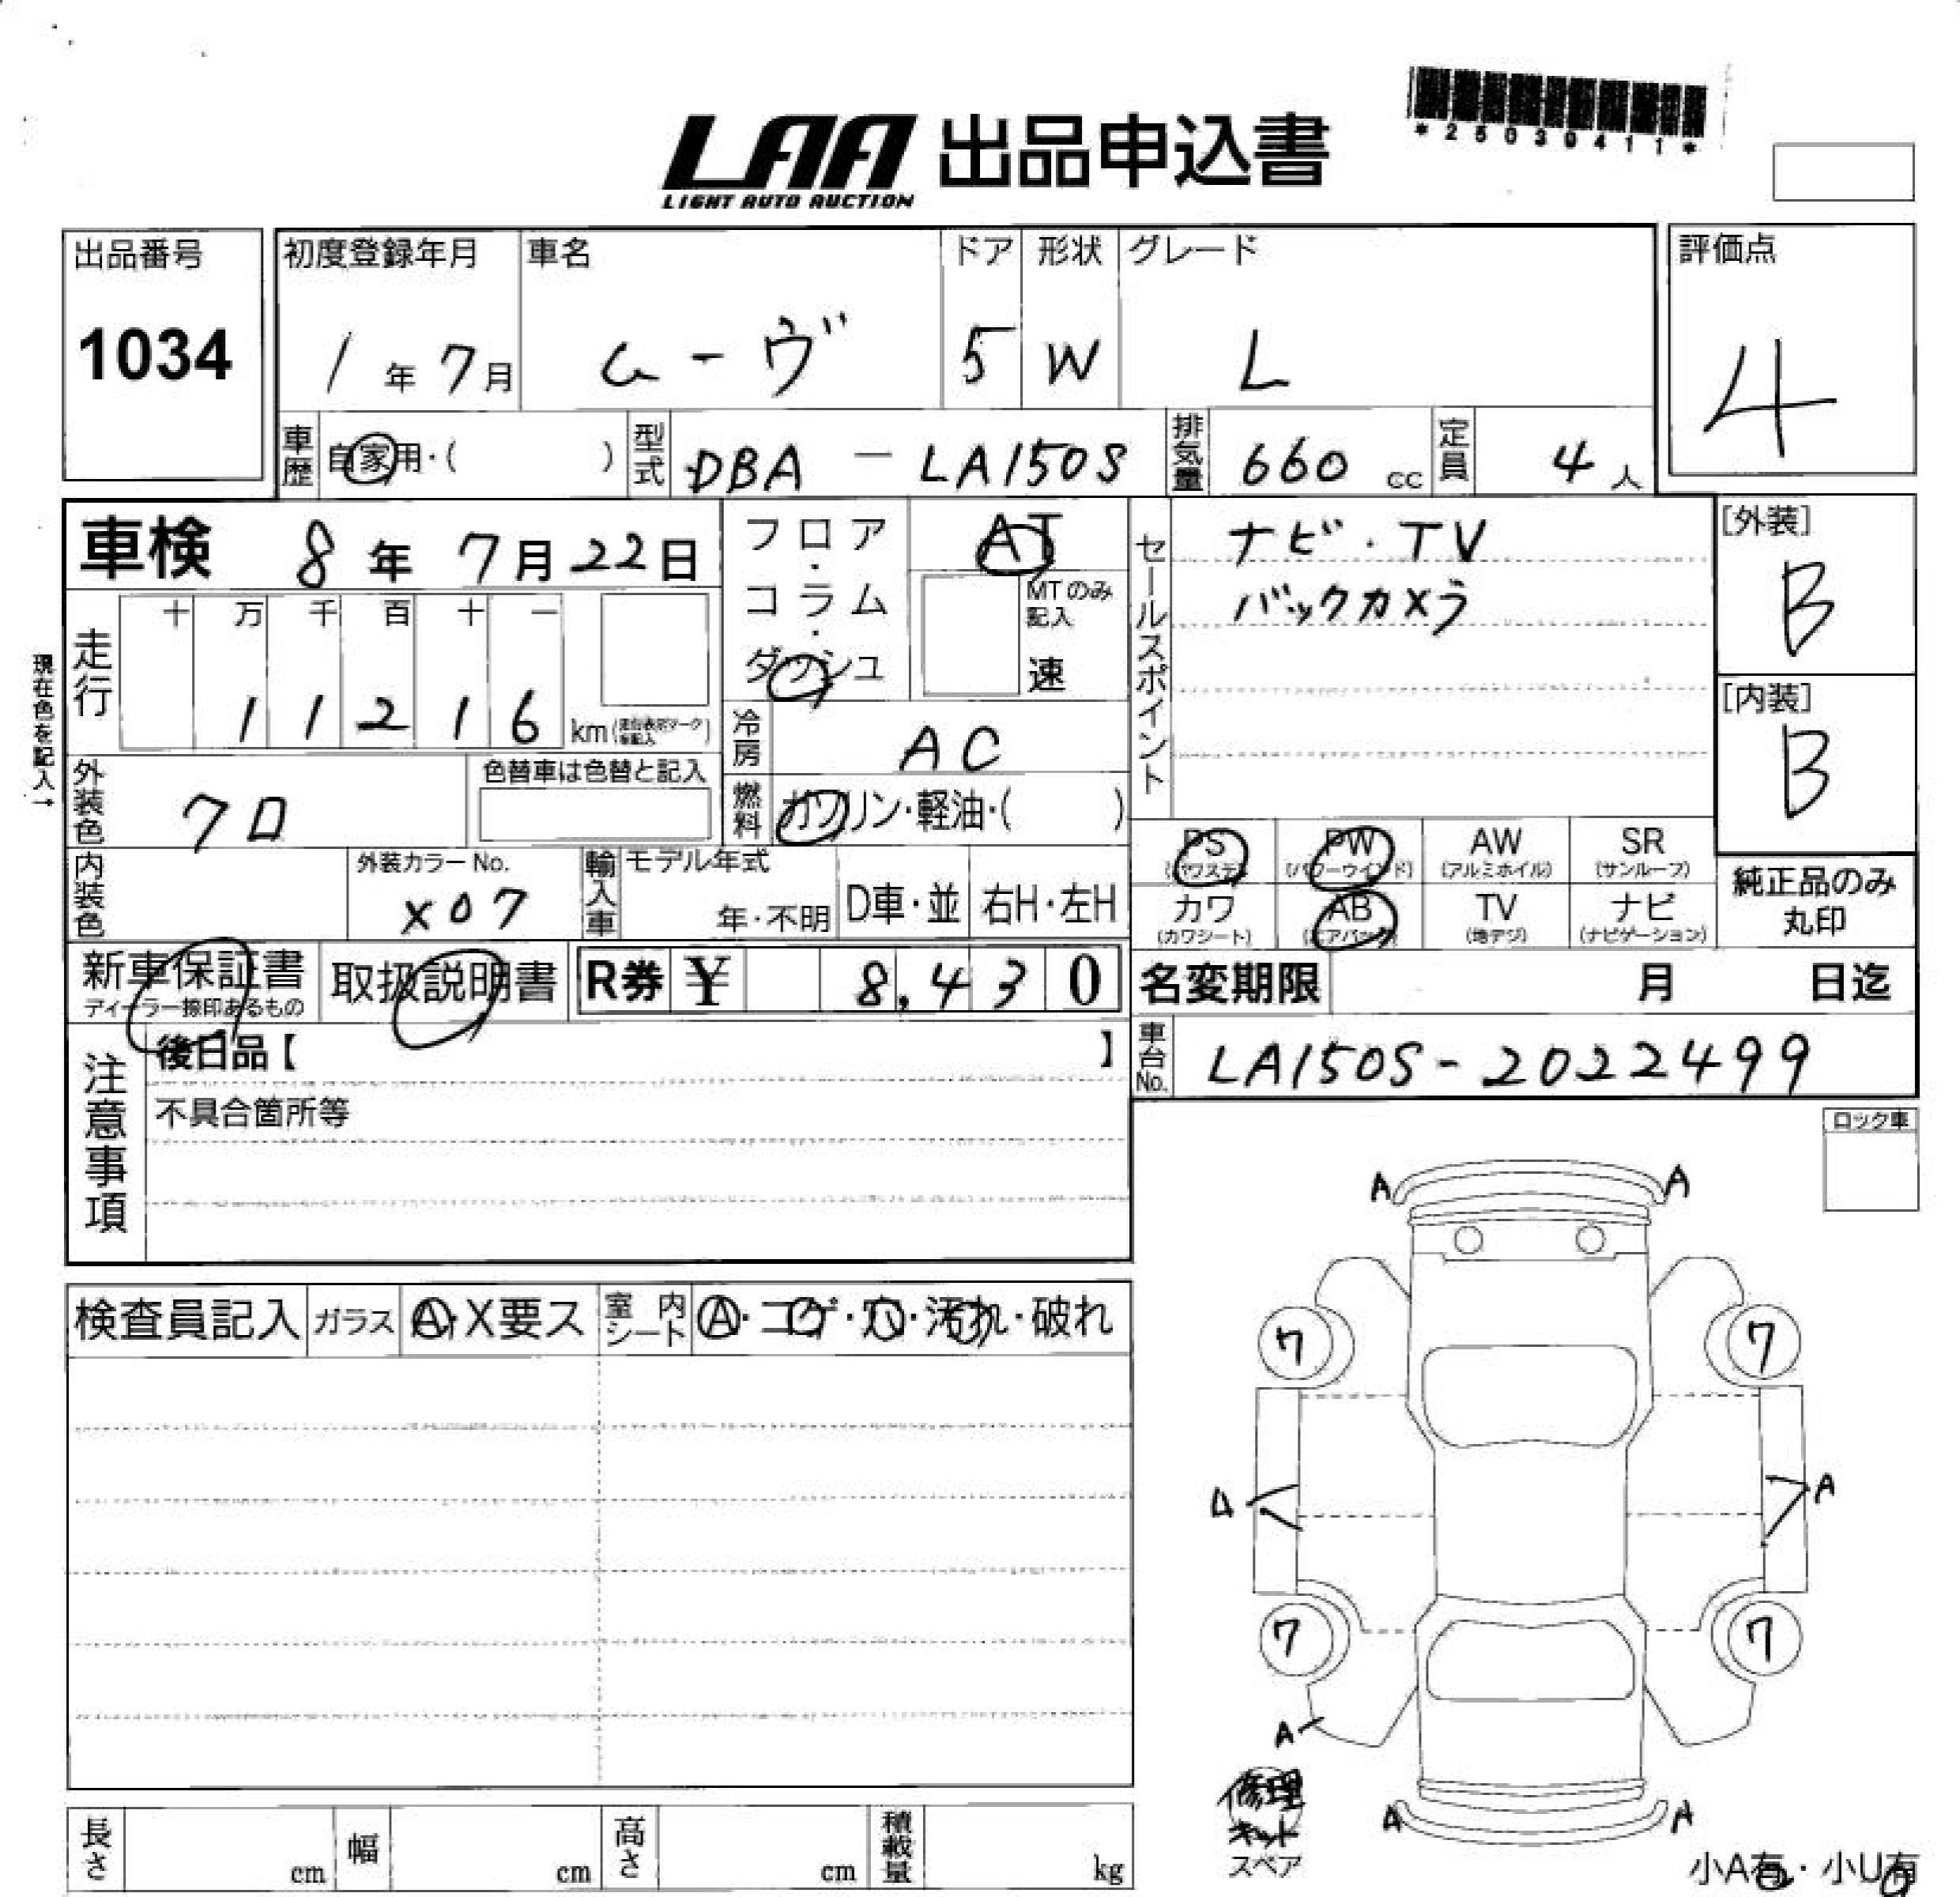 *25030411*
LAA 出品申込書
LIGHT AUTO AUCTION
出品番号 1034
初度登録年月 1年7月
車名 ムーヴ
ドア 5
形状 W
グレード L
評価点 4
車歴 自家用・( )
型式 DBA-LA150S
排気量 660 cc
定員 4人
車検 8年7月22日
フロア・コラム・ダッシュ
AT
MTのみ記入
速
セールスポイント
ナビ・TV
バックカメラ
[外装] B
[内装] B
現在色を記入→
走行 十 万 千 百 十 一
11216 km
冷房 AC
外装色 クロ
色替車は色替と記入
燃料 ガソリン・軽油・( )
内装色
外装カラーNo. X07
輸入車 モデル年式
年・不明 D車・並 右H・左H
PS PW AW SR
(パワステ) (パワーウインド) (アルミホイル) (サンルーフ)
カワ AB TV ナビ
(カワシート) (エアバック) (地デジ) (ナビゲーション)
純正品のみ丸印
新車保証書
ディーラー捺印あるもの
取扱説明書
R券 ¥ 8,430
名変期限 月 日迄
車台No. LA150S-2022499
注意事項
後日品【 】
不具合箇所等
ロック車
検査員記入 ガラス A・X要ス 室内シート A・コゲ・穴・汚れ・破れ
A A
7 7
A A
7 7
A
A A
修理
キット
スペア
小A有・小U有
長さ cm 幅 cm 高さ cm 積載量 kg